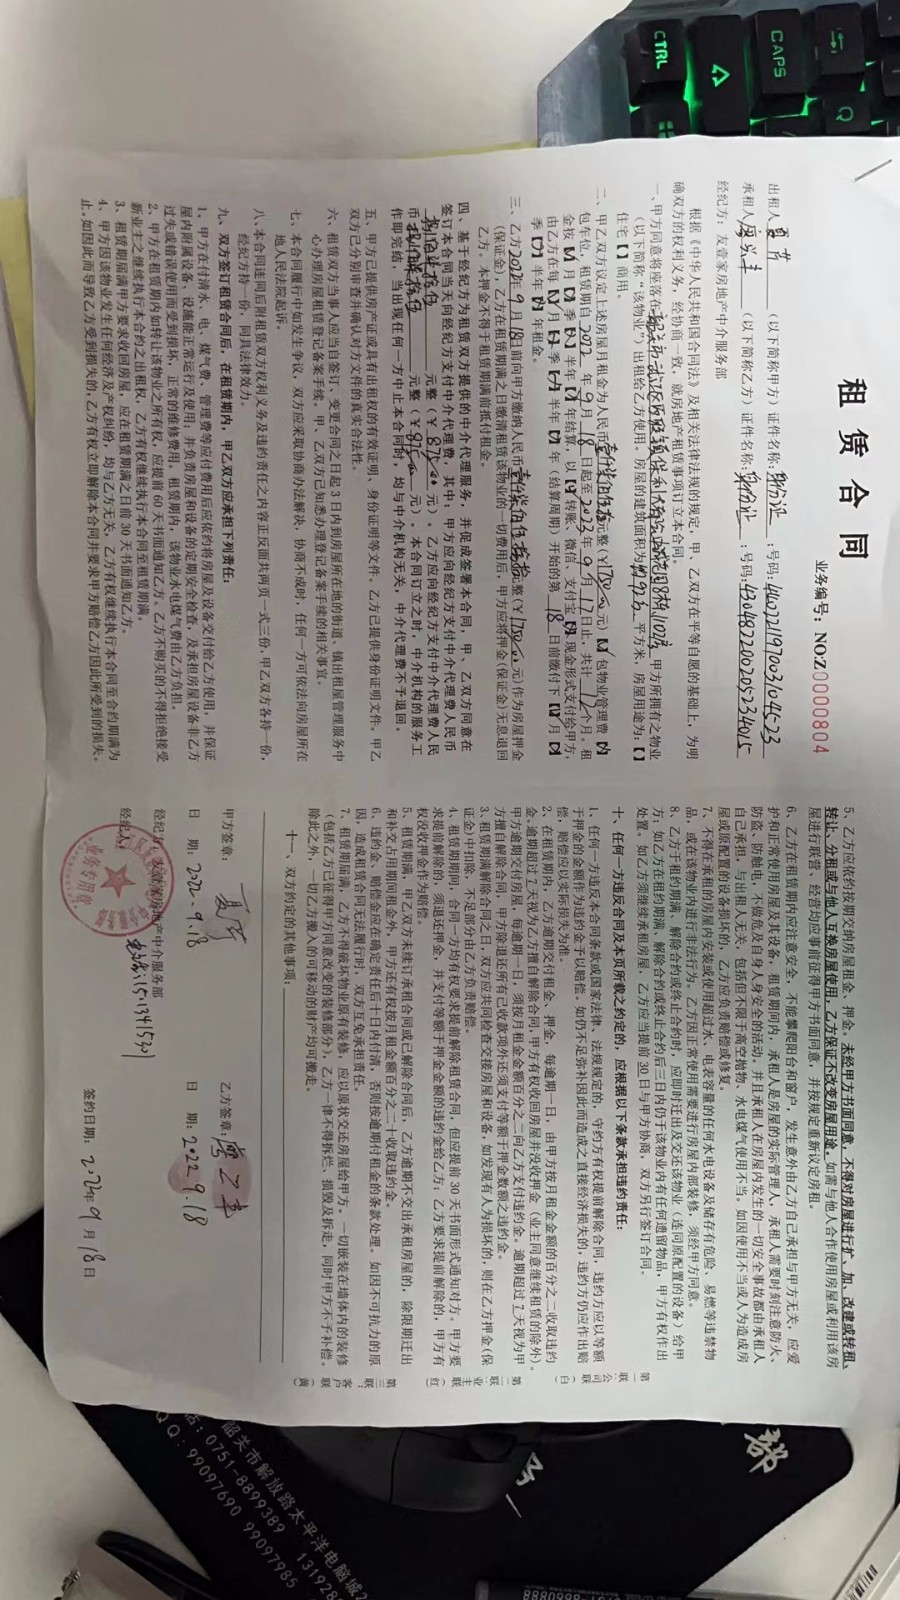 租赁合同
业务编号：NO:Z0000804
出租人 （以下简称甲方）证件名称：身份证；号码：
承租人 （以下简称乙方）证件名称：身份证；号码：
经纪方：友壹家房地产中介服务部
根据《中华人民共和国合同法》及相关法律法规的规定，甲、乙双方在平等自愿的基础上，为明
确双方的权利义务，经协商一致，就房地产租赁事项订立本合同。
一、甲方同意将座落在 甲方所拥有之物业
（以下简称“该物业”）出租给乙方使用。房屋的建筑面积为 平方米，房屋用途为：【】
住宅【】商用。
二、甲乙双方议定上述房屋月租金为人民币 元整（￥1750.00元）【】包物业管理费【】
包车位，租赁期自2022年9月18日起至 年9月17日止，共计12个月。租
金按【】月【】季【】半年【】年结算，以【】转账、微信、支付宝【】现金形式支付给甲方，
由乙方在每【】月【】季【】半年【】年（结算周期）开始的第18日前缴付下【】月【】
季【】半年【】年租金。
三、乙方2022年9月18日前向甲方缴纳人民币 元整（￥1750.00元）作为房屋押金
（保证金），乙方在租赁期满之日缴清租赁该物业的一切费用后，甲方应将押金（保证金）无息退回
乙方，本押金不得于租赁期满前抵付租金。
四、基于经纪方为租赁双方提供的中介代理服务，并促成签署本合同，甲、乙双方同意在
签订本合同当天向经纪方支付中介代理费，其中：甲方应向经纪方支付中介代理费人民币
元整（￥875.00元）。乙方应向经纪方支付中介代理费人民
币 元整（￥875.00元）。本合同订立之时，中介机构的服务工
作即完结，当出现任何一方中止本合同时，均与中介机构无关，中介代理费不予退回。
五、甲方已提供房产证或具有出租权的有效证明、身份证明等文件。乙方已提供身份证明文件。甲乙
双方已分别审查并确认对方文件的真实合法性。
六、租赁双方当事人应当自签订、变更合同之日起3日内到房屋所在地的街道、镇出租屋管理服务中
心办理房屋租赁登记备案手续。甲、乙双方已知悉办理登记备案手续的相关事宜。
七、本合同履行中如发生争议，双方应采取协商办法解决，协商不成时，任何一方可依法向房屋所在
地人民法院起诉。
八、本合同连同后附租赁双方权利义务及违约责任之内容正反面共两页一式三份，甲乙双方各持一份，
经纪方持一份，同具法律效力。
九、双方签订租赁合同后，在租赁期内，甲乙双方应承担下列责任：
1、甲方在付清水、电、煤气费、管理费等应付费用后应依约将房屋及设备交付给乙方使用，并保证
屋内附属设备、设施能正常运行及使用；并负责房屋和设备的定期安全检查，及承担房屋设备非乙方
过失或错误使用而受到损坏，正常的维修费用。租赁期内，该物业水电煤气费由乙方负担。
2、甲方在租赁期内如转让该物业之所有权，应提前60天书面通知乙方。乙方不购买的不得拒绝接受
新业主之继续执行本合约之出租权，乙方有权继续执行本合同至租赁期满。
3、租赁期届满甲方要求收回房屋，应在租赁期满之日前30天书面通知乙方。
4、甲方因该物业发生任何经济及产权纠纷，均与乙方无关，乙方有权继续执行本合同至合约期满为
止。如因此而导致乙方受到损失的，乙方有权立即解除本合同并要求甲方赔偿乙方因此所受到的损失。
5、乙方应依约按期交纳房屋租金、押金。未经甲方书面同意，不得对房屋进行扩、加、改建或转租、
转让、分租或与他人互换房屋使用，乙方保证不改变房屋用途。如需与他人合作使用房屋或利用该房
屋进行联营、经营均应事前征得甲方书面同意，并按规定重新议定房租。
6、乙方在租赁期内应注意安全，不能攀爬阳台和窗户，发生意外由乙方自己承担与甲方无关，应爱
护和正常使用房屋及其设备，租赁期间内，承租人是房屋的实际管理人，承租人需要时刻注意防火、
防盗、防触电，不做危及自身人身安全的活动，并且承租人在房屋内发生的一切安全事故都由承租人
自己承担，与出租人无关，包括但不限于高空抛物、水电煤气使用不当，如因使用不当或人为造成房
屋或原配置的设备损坏的，乙方应负责赔偿或修复。
7、不得在承租的房屋内安装或使用超过水、电表容量的任何水电设备及储存有危险、易燃等违禁物
品，或在该物业内进行非法行为。乙方因正常使用需要进行房屋内部装修，须经甲方同意。
8、乙方于租约期满、解除合约或终止合约时，应即时迁出及交还该物业（连同原配置的设备）给甲
方；如乙方在租约期满、解除合约或终止合约后三日内仍于该物业内有任何遗留物品，甲方有权作出
处置。如乙方须继续承租房屋，乙方应当提前30日与甲方协商，双方另行签订合同。
十、任何一方违反合同及本页所载之约定的，应根据以下条款承担违约责任：
1、任何一方违反本合同条款或国家法律、法规规定的，守约方有权提前解除合同，违约方应以等额
于押金的金额作为违约金予以赔偿。如仍不足弥补因此而造成之直接经济损失的，违约方仍应作出赔
偿，赔偿应以实际损失为准。
2、在租赁期内，乙方逾期交付租金、押金，每逾期一日，由甲方按月租金金额的百分之二收取违约
金；逾期超过7天视为乙方擅自解除合同，甲方有权收回房屋并没收押金（业主同意继续租赁的除外）。
甲方逾期交付房屋，每逾期一日，须按月租金金额百分之二向乙方支付违约金。逾期超过7天视为甲
方擅自解除合同，甲方除退还所有已收款项外还须支付等额于押金数额之违约金。
3、租赁期满解除合同之日，双方应共同检查交接房屋和设备，如发现有人为损坏的，则在乙方押金（保
证金）中扣除，不足部分由乙方负责赔偿。
4、租赁期期间，合同一方均有权要求提前解除租赁合同，但应提前30天书面形式通知对方。甲方要
求提前解除的，须退还押金，并支付等额于押金金额的违约金给乙方；乙方要求提前解除的，甲方有
权没收押金作为赔偿。
5、租赁期满，甲乙双方未续订承租合同或已解除合同后，乙方逾期不交出承租房屋的，除限期迁出
和补交占用期间租金外，甲方还有权按月租金额百分之二计收取违约金。
6、违约金、赔偿金应在确定责任后十日内付清，否则按逾期付租金的条款处理。如因不可抗力的原
因，造成租赁合同无法履行时，双方互免承担责任。
7、租赁期届满，乙方不得破坏物业原有装修，应以原状交还房屋给甲方。一切嵌装在墙体内的装修
（包括乙方已征得甲方同意改变的装修部分），乙方一律不得拆烂、损毁及拆走，同时甲方不予补偿。
除此之外，一切乙方搬入的可移动的财产均可搬走。
十一、双方约定的其他事项：
甲方签章： 乙方签章：
日 期：2022.9.18 日 期：2022.9.18
经纪方：友壹家房地产中介服务部
经纪人：
签约日期：2022年9月18日
业务专用章
第一联：公司联（白）
第二联：业主联（红）
第三联：客户联（黄）
CTRL
CAPS
Q
部
韶关市解放路太平洋电脑城
话：0751-8899389
QQ：99097690 99097985